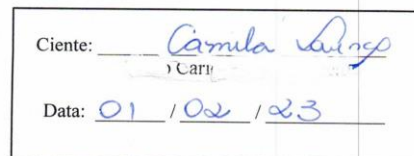 Ciente: Camila
Data: 01 / 02 / 23